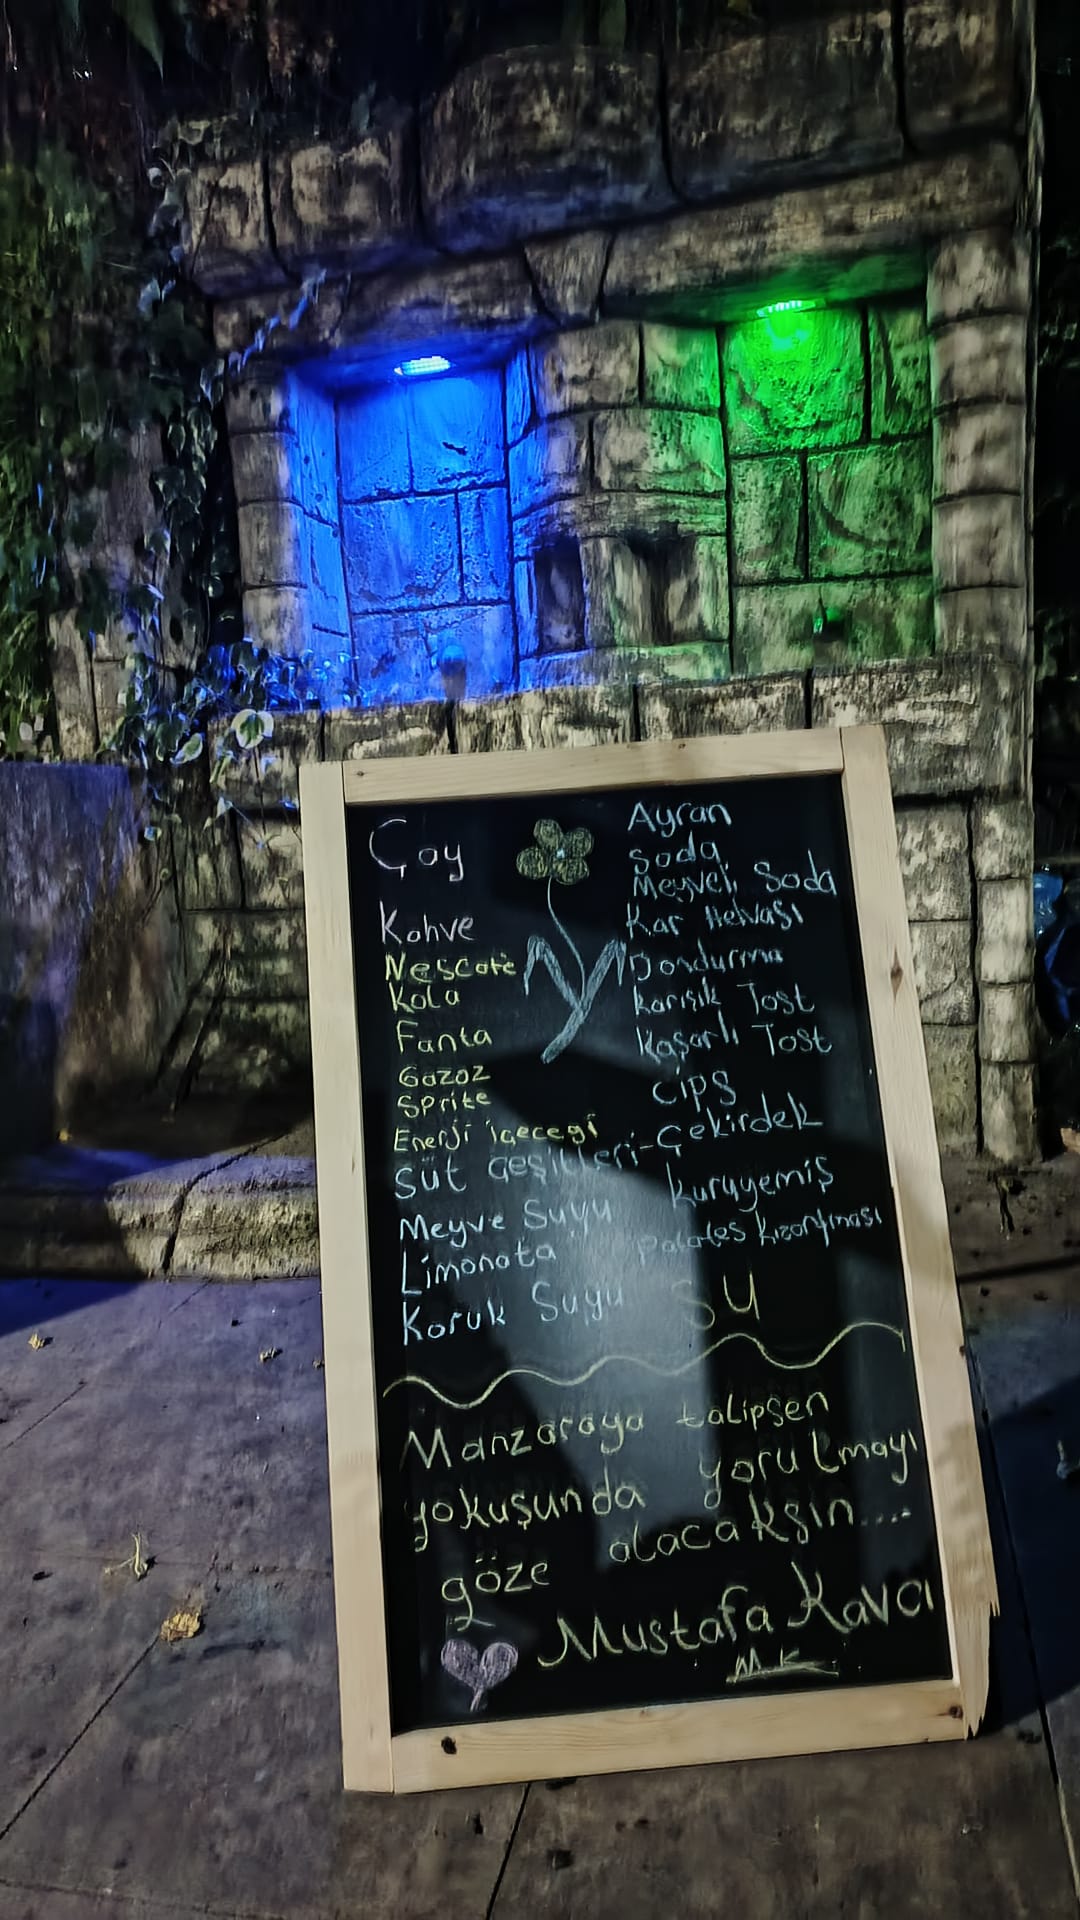 Çay
Kahve
Nescafe
Kola
Fanta
Gazoz
Sprite
Enerji içeceği
Süt Çeşitleri
Meyve Suyu
Limonata
Koruk Suyu
Ayran
Soda
Meyveli Soda
Kar Helvası
Dondurma
Karışık Tost
Kaşarlı Tost
Cips
Çekirdek
Kuruyemiş
Patates kızartması
SU
Manzaraya talipsen
yokuşunda yorulmayı
göze alacaksın....
Mustafa Kavcı
M.K